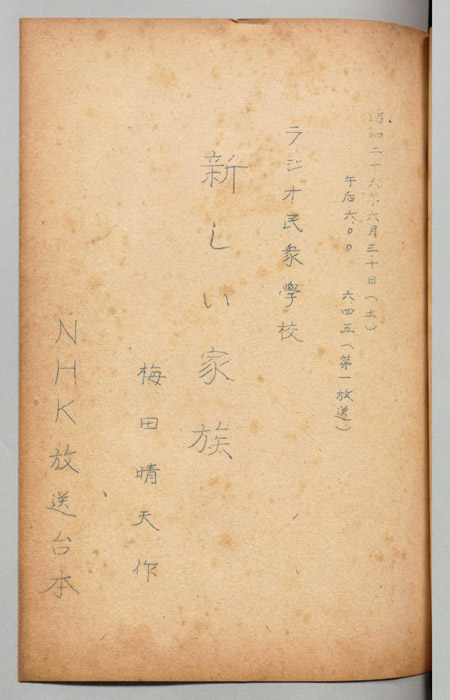 昭和二十六年六月三十日(土)
午后六.00 六四五(第一放送)
ラジオ民衆學校
新しい家族
梅田晴夫作
NHK放送台本